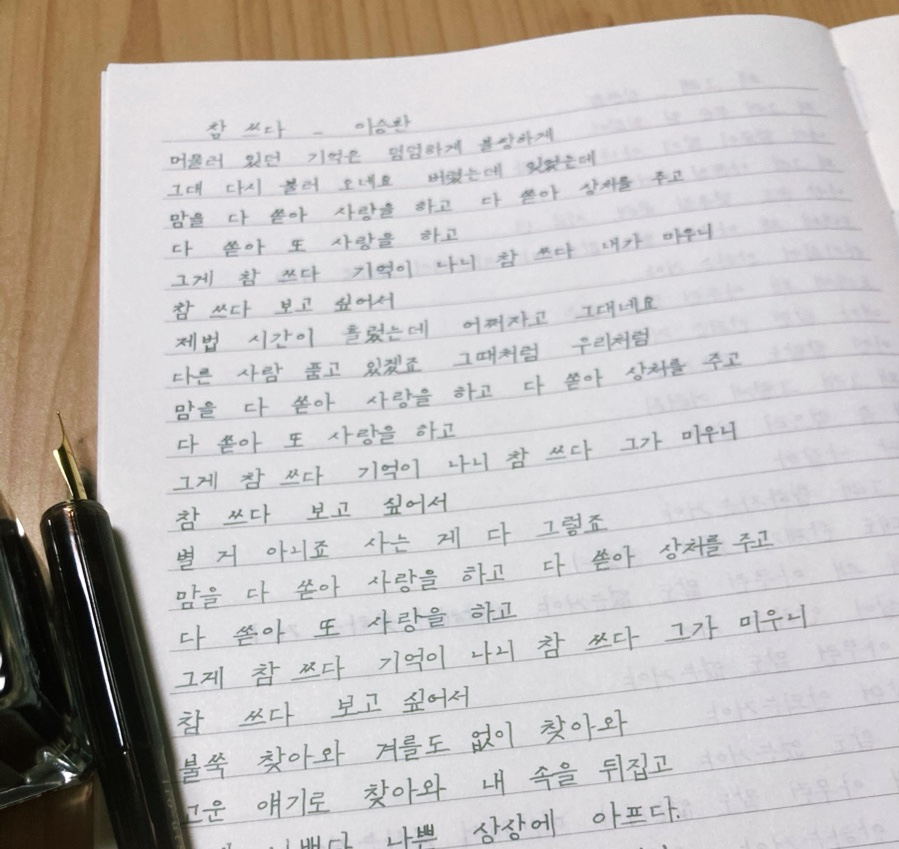 참 쓰다 - 이승환
머물러 있던 기억은 덤덤하게 불쌍하게
그대 다시 불러 오네요 버렸는데 잊었는데
맘을 다 쏟아 사랑을 하고 다 쏟아 상처를 주고
다 쏟아 또 사랑을 하고
그게 참 쓰다 기억이 나니 참 쓰다 내가 미우니
참 쓰다 보고 싶어서
제법 시간이 흘렀는데 어쩌자고 그대네요
다른 사람 품고 있겠죠 그때처럼 우리처럼
맘을 다 쏟아 사랑을 하고 다 쏟아 상처를 주고
다 쏟아 또 사랑을 하고
그게 참 쓰다 기억이 나니 참 쓰다 그가 미우니
참 쓰다 보고 싶어서
별 거 아니죠 사는 게 다 그렇죠
맘을 다 쏟아 사랑을 하고 다 쏟아 상처를 주고
다 쏟아 또 사랑을 하고
그게 참 쓰다 기억이 나니 참 쓰다 그가 미우니
참 쓰다 보고 싶어서
불쑥 찾아와 겨를도 없이 찾아와
고운 얘기로 찾아와 내 속을 뒤집고
나쁜 상상에 아프다.